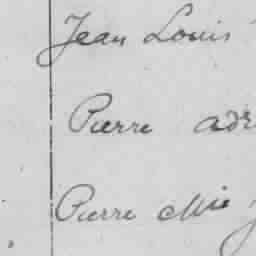 Jean Louis
Pierre adr
Pierre Mie